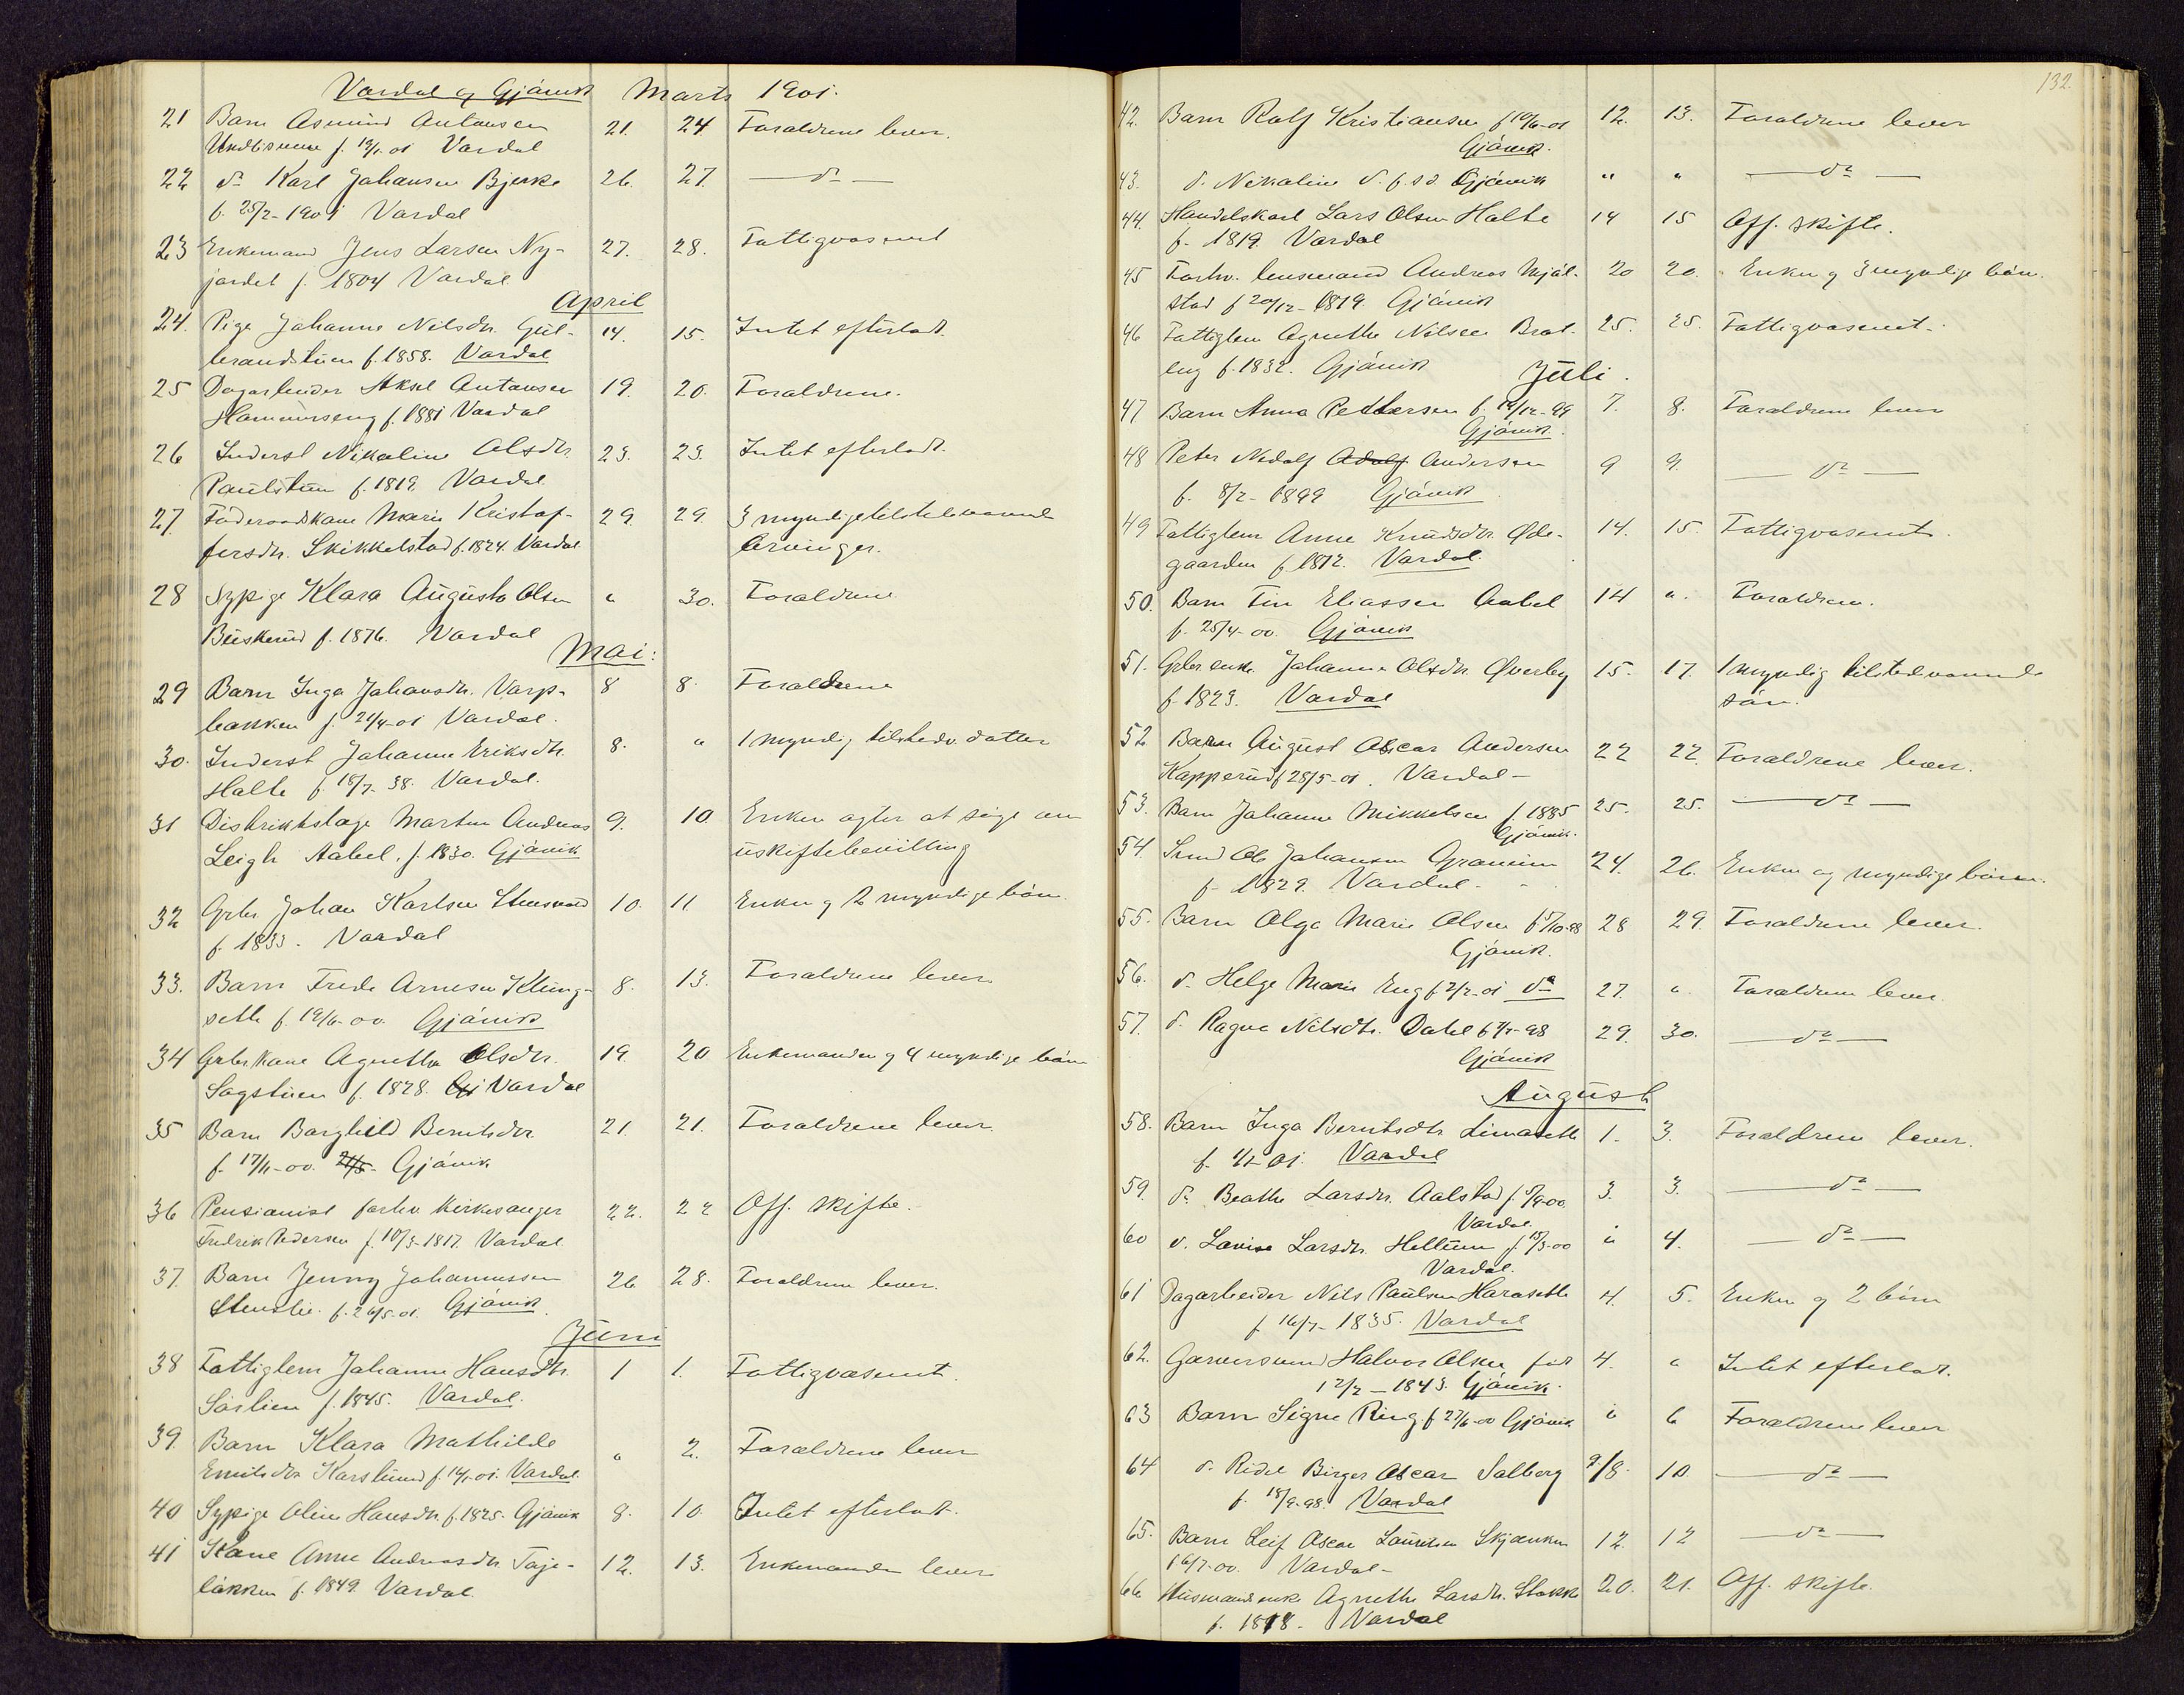 Vardal og Gjøvik Marts 1901.
21 Barn Asmund Antonsen 21. 24. Forældrene lever.
f. 19/1-01 Vardal
22 do Karl Johansen Bjerke 26. 27. — do —
f. 25/2-1901 Vardal
23 Enkemand Jens Larsen Ny- 27. 28. Fattigvæsenet
jordet f. 1804 Vardal
April
24. Pige Johanne Nilsdtr. Gul- 14. 15. Intet efterladt.
brandstuen f. 1858. Vardal
25 Dagarbeider Aksel Antonsen 19. 20. Forældrene.
Hammerseng f. 1881 Vardal
26 Inderst Nikoline Olsdtr. 23. 23. Intet efterladt.
Paulstuen f. 1819. Vardal
27. Føderaadskane Marie Kristof- 29. 29. 3 myndige tilstedeværende
fersdtr. Skikkelstad f. 1824. Vardal arvinger.
28 Sypige Klara Augusta Olsen " 30. Forældrene
Buskerud f. 1876. Vardal
Mai:
29 Barn Inga Johansdtr. Varp- 8 8. Forældrene
bakken f. 24/4-01 Vardal.
30. Inderst Johanne Eriksdtr. 8. " 1 myndig tilstedv. datter
Halte f. 18/7-38. Vardal.
31 Distriktslæge Morten Andreas 9. 10. Enken agter at søge om
Leigh Aabel, f. 1830. Gjøvik uskiftebevilling
32 Grbr. Johan Karlsen Stensvold 10. 11. Enken og 2 myndige børn.
f. 1833. Vardal
33. Barn Frede Arnesen Kling- 8. 13. Forældrene lever
seth f. 19/6-00. Gjøvik
34 Grbrkane Agnethe Olsdtr. 19. 20 Enkemanden og 4 myndige børn
Sagstuen f. 1828. Gj Vardal
35 Barn Borghild Berntsdtr. 21. 21. Forældrene lever.
f. 17/11-00. 21/5- Gjøvik
36 Pensionist forhv. kirkesanger 22. 22 Off. skifte.
Fredrik Pedersen f. 10/3-1817. Vardal.
37. Barn Jenny Johannessen 26 28. Forældrene lever.
Stenslie. f. 26/5-01. Gjøvik.
Juni
38 Fattiglem Johanne Hansdtr. 1 1. Fattigvæsenet.
Sørlien f. 1845. Vardal.
39. Barn Klara Mathilde " 2. Forældrene lever
Emilsdtr. Karslund f. 14/1-01. Vardal.
40 Sypige Oline Hansdtr. f. 1825. Gjøvik 8. 10. Intet efterladt.
41 Kane Anne Andreasdtr. Taje- 12. 13. Enkemanden lever
løkken f. 1849. Vardal.
132.
42. Barn Rolf Kristiansen f 10/6-01 12. 13. Forældrene lever
Gjøvik.
43. d. Nikoline d. f. s.d. Gjøvik " " — do —
44. Handelskarl Lars Olsen Halte 14 15 Off. skifte.
f. 1819. Vardal
45 Forhv. lensmand Andreas Mjøl- 20 20. Enken og 3 myndige børn.
stad f 20/12-1819. Gjøvik
46 Fattiglem Agnethe Nilsen Brat- 25. 25. Fattigvæsenet.
eng f. 1832. Gjøvik
Juli.
47. Barn Anna Pettersen f. 19/12-99 7. 8. Forældrene lever
Gjøvik.
48 Peter Nedolf Adolf Andersen 9 9. — do —
f. 8/2-1899 Gjøvik
49 Fattiglem Anne Knudsdtr. Øde- 14. 15. Fattigvæsenet.
gaarden f. 1812. Vardal.
50. Barn Finn Eliassen Aabel 14 ". Forældrene.
f. 25/4-00. Gjøvik
51. Grbr.enke Johanne Olsdtr. Øverby 15. 17. 1 myndig tilstedeværende
f. 1823. Vardal søn.
52. Barn August Oscar Andersen 22 22. Forældrene lever.
Kapperud f 28/5-01. Vardal-
53. Barn Johanne Mikkelsen f. 1885 25. 25. — do —
Gjøvik.
54. Smed Ole Johansen 24. 26. Enken og myndige børn.
f. 1829. Vardal.
55. Barn Olga Marie Olsen f 5/10-98 28 29. Forældrene lever.
Gjøvik.
56. d. Helge Marie Eng f 2/2-01 do 27. " Forældrene lever.
57. d. Ragna Nilsdtr. Dahl 29. 30. — do —
Gjøvik
August
58. Barn Inga Berntsdtr. 1. 3. Forældrene lever.
Vardal
59. d. Beathe Larsdtr. Aalstad f. 5/9-00. 3. 3. — do —
Vardal.
60 d. Lovise Larsdtr. f. 15/3-00 " 4. — do —
Vardal.
61 Dagarbeider Nils Paulsen Haraseth 4. 5. Enken og 2 børn
f 16/7-1835. Vardal
62. Garversvend Halvor Olsen født 4. " Intet efterlat.
12/2-1843. Gjøvik.
63 Barn Signe Ring f 27/6-00 Gjøvik " 6 Forældrene lever
64 d. Birger Oscar Solberg 9/8. 10. — do —
f. 18/9-98. Vardal
65. Barn Leif Oscar Lauritsen Skjønken 12. 12 — do —
f 6/7-00. Vardal-
66 Husmandsenke Agnethe Larsdtr. Stokke 20. 21. Off. skifte.
f. 1818. Vardal